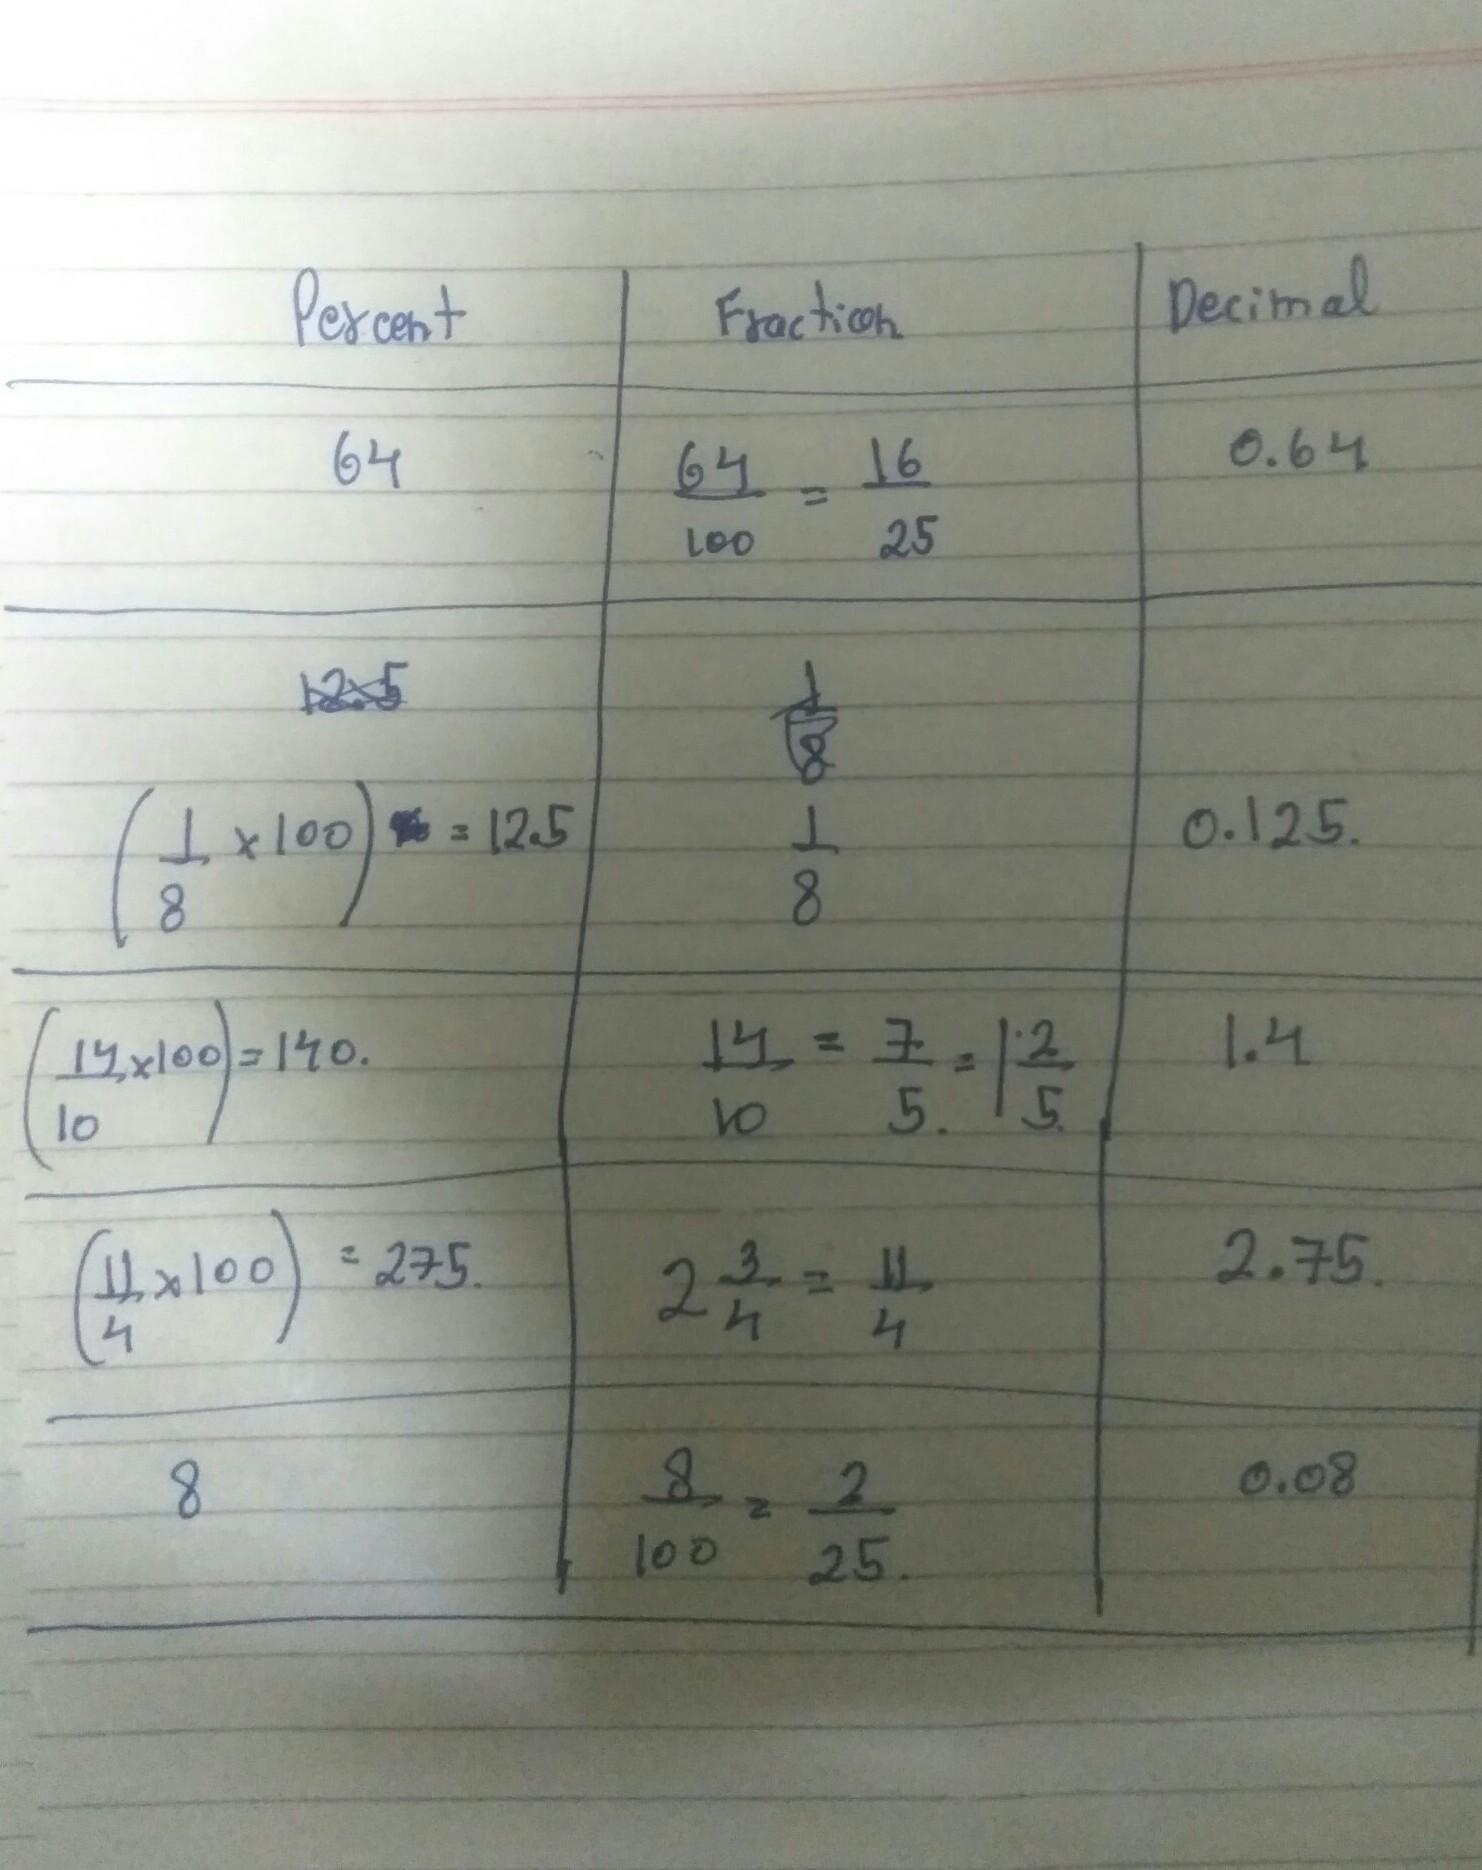 Percent Fraction Decimal
64 64/100 = 16/25 0.64
12.5 1/8
(1/8 x 100) = 12.5 1/8 0.125.
(14/10 x 100) = 140. 14/10 = 7/5. = 1 2/5. 1.4
(11/4 x 100) = 275. 2 3/4 = 11/4 2.75.
8 8/100 = 2/25. 0.08